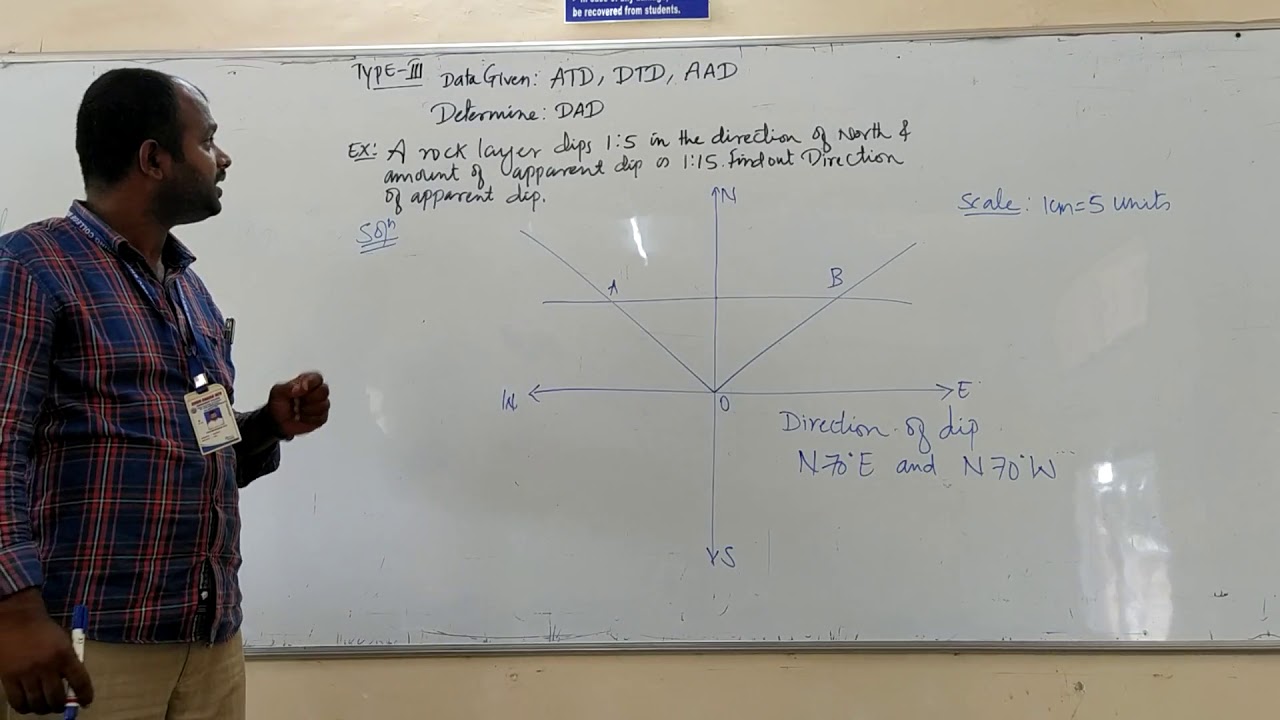 be recovered from students.
TYPE-III Data Given: ATD, DTD, AAD
Determine: DAD
Ex: A rock layer dips 1:5 in the direction of North &
amount of apparent dip is 1:15. find out Direction
of apparent dip.
Scale: 1cm=5 units
Soln
N
A
B
W
E
O
Direction of dip
N70°E and N70°W
S